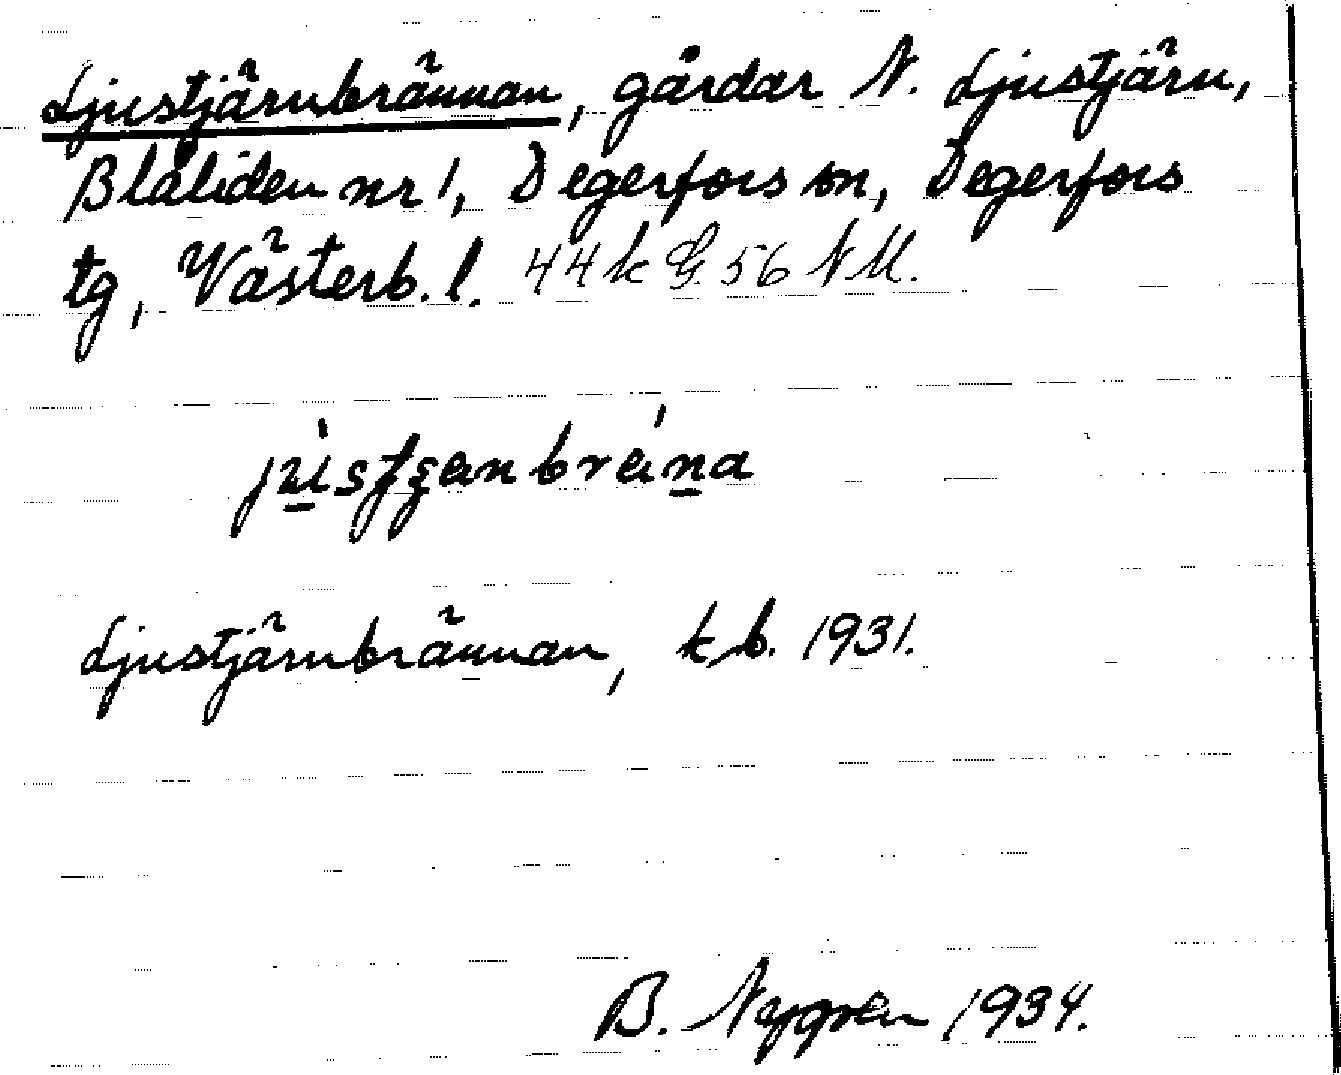 Ljustjärnbrännan, gårdar N. Ljustjärn,
Blåliden nr 1, Degerfors sn, Degerfors
tg, Västerb. l. 44 k G. 56 N M.
Ljustjärnbrännan, kb. 1931.
B. Nygren 1934.